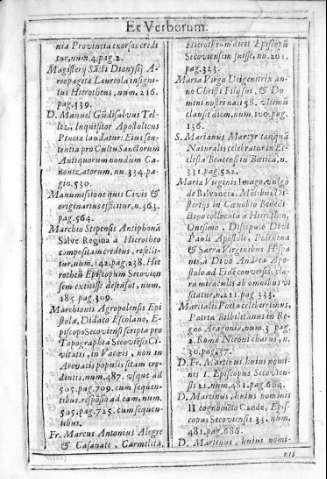 Et Verborum.
nia Provincia exorsus credi
tur, num. 4. pag. 2.
Magisterij Sācti Dionysij A-
reopagitæ Laureola insigni-
tus Hierotheus, num. 216.
pag. 139.
D. Manuel Gūdisalvus Tel-
lez, Inquisitor Apostolicus
Pincia laudatur: Eius sen-
tentia pro Cultu Sanctorum
Antiquorum nondum Ca-
nonizatorum, nn. 334. pa-
gin. 530.
Manumissione quis Civis &
originarius efficitur, n. 363.
pag. 564.
Marchio Stepensis Antiphonā
Salve Regina à Hierotheo
compositam credens, reselli-
tur, num. 142. pag. 238. Hie
rotheū Episcopum Secovien
sem extitisse defensat, num.
185. pag. 309.
Marchionis Agropolensis Epi
stola, Didaco Escolano, E-
piscopo Secoviensi scripta pro
Topographia Secoviensis Ci-
vitatis, in Vaceis, non in
Arevacis populis sitam cre-
dentis, num. 487. usque ad
505. pag. 709. cum sequen-
tibus, responsio ad eam, num.
505. pag. 725. cum sequen-
tibus.
Fr. Marcus Antonius Alegre
& Casanate, Carmelita,
Hierotheum dicit Episcopū
Secoviensem fuisse, nn. 201.
pag. 323.
Maria Virgo Deigenitrix an-
no Christi Filij sui, & Do
mini nostri na 58. ultimū
clausit diem, num. 100. pag.
136.
S. Martianus Martyr tanquā
Naturalis celebratur in Ec-
clesia Beatensi in Bætica, n.
331. pag. 522.
Mariæ Virginis Imago, vulgò
de Balvanera
storijs in Cœnobio Benedi
ctino collocata à Hierotheo,
Onesimo, Discipulo Divi
Pauli Apostoli, Polixena
& Sarra Virginibus Hispa
nis à Divo Andrea Apo-
stolo ad Fidē conversis, cla-
ra miraculis ab omnibus vi
sitatur, n. 211. pag. 333.
Martialis Poeta celtiberianus,
Patria Bilbilitanus in Re-
gno Aragonia, num. 3. pag
2. Romæ Neroni charus, n.
30. pag. 37.
D. Fr. Martinus, huius nomi
nis I. Episcopus Secovien-
sis 21. num. 481. pag. 684.
D. Martinus, huius nominis
II cognomēto Cande, Epis-
copus Secoviensis 33. num.
481. pag. 686.
D. Martinus, huius nomi-
nis